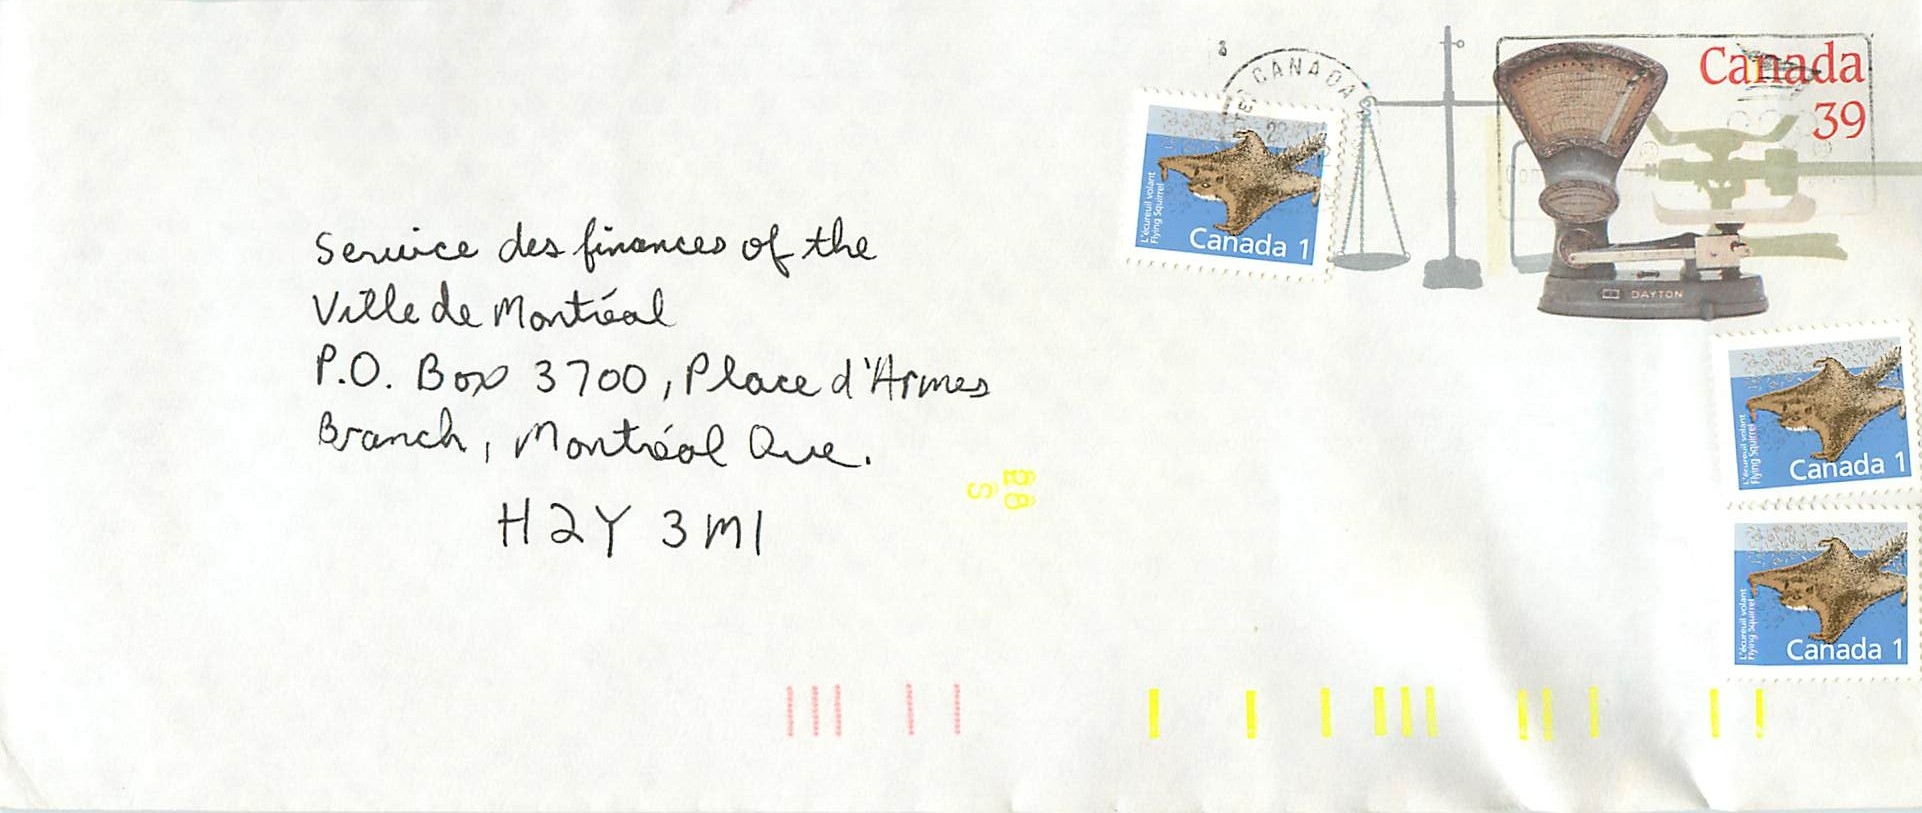 Service des finances of the
Ville de Montréal
P.O. Box 3700, Place d'Armes
Branch, Montréal Que.
H2Y 3M1
CANADA
Canada
39
DAYTON
L'écureuil volant
Flying Squirrel
Canada 1
L'écureuil volant
Flying Squirrel
Canada 1
L'écureuil volant
Flying Squirrel
Canada 1